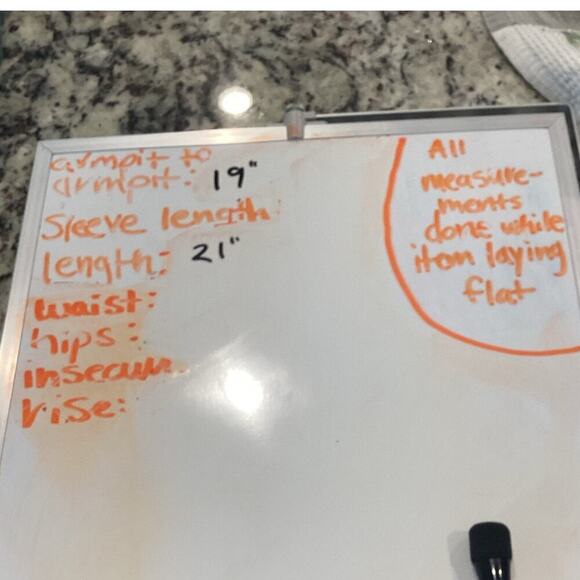 armpit to
armpit: 19"
Sleeve length
length: 21"
waist:
hips:
inseam
rise:
All
measure-
ments
done while
item laying
flat